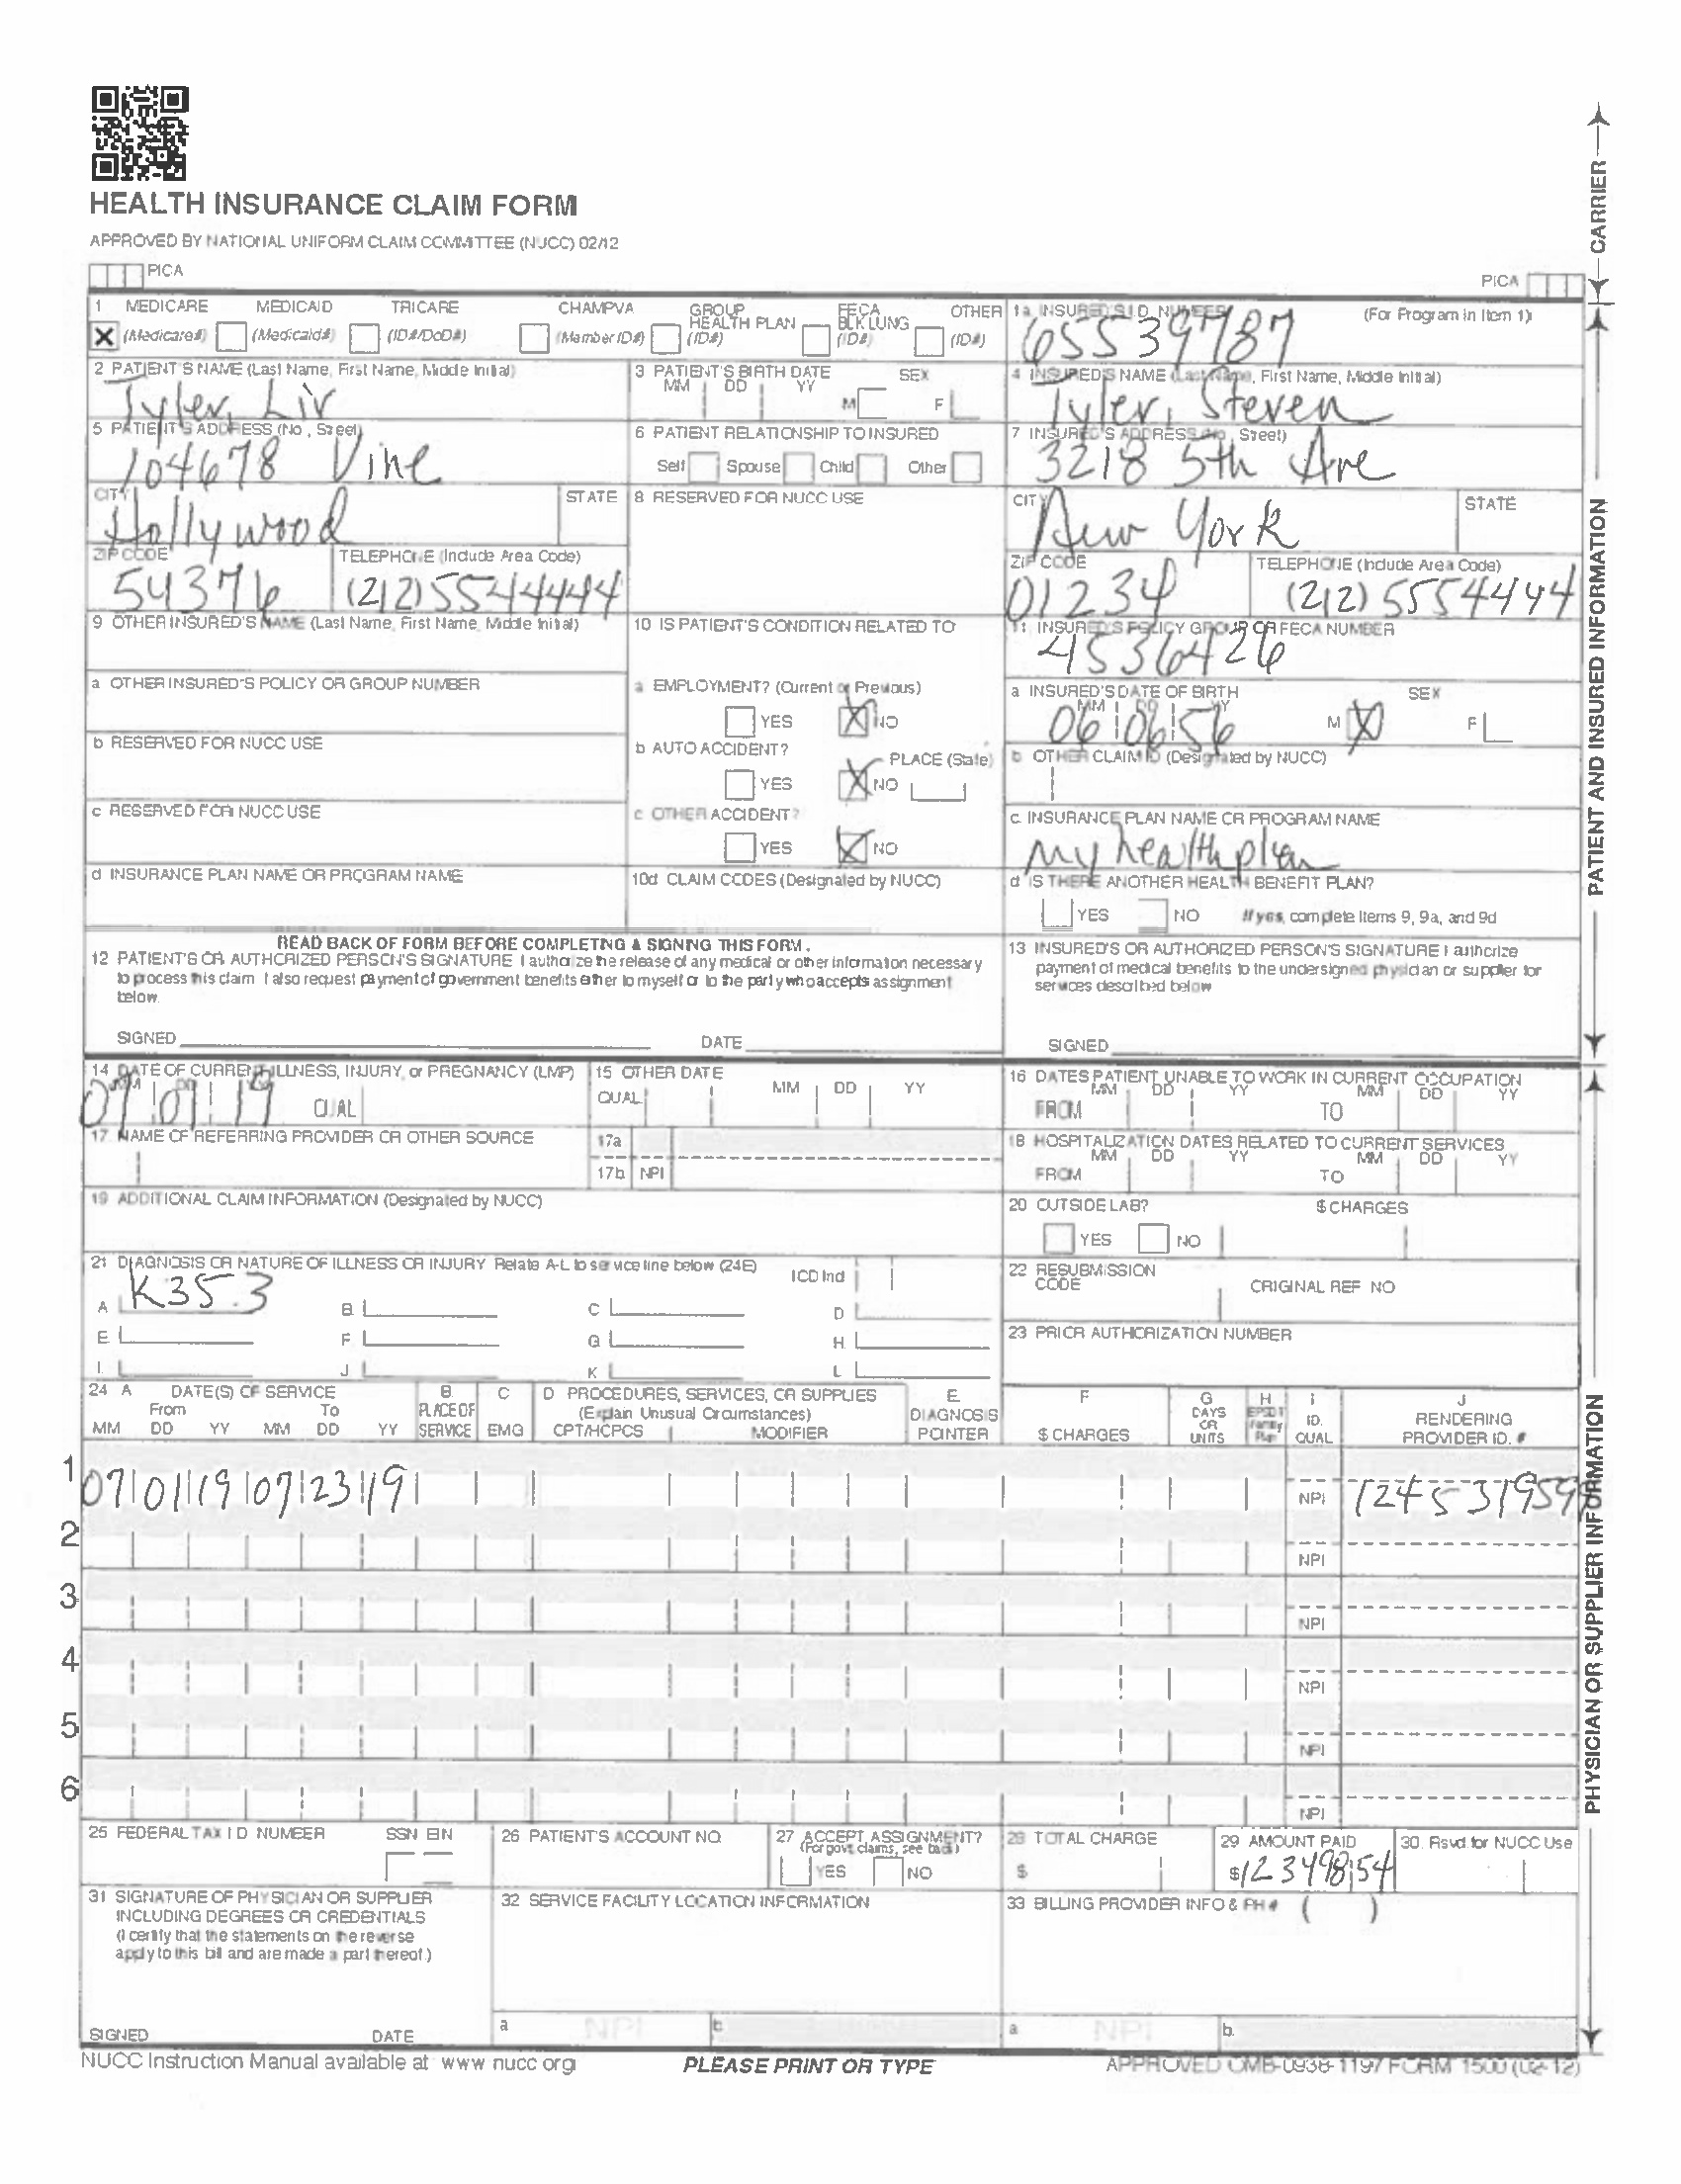 HEALTH INSURANCE CLAIM FORM
APPROVED BY NATIONAL UNIFORM CLAIM COMMITTEE (NUCC) 02/12
PICA
PICA
CARRIER
1 MEDICARE MEDICAID TRICARE CHAMPVA GROUP HEALTH PLAN FECA BLK LUNG OTHER
X (Medicare#) (Medicaid#) (ID#/DoD#) (Member ID#) (ID#) (ID#) (ID#)
1a INSURED'S I D NUMBER (For Program in Item 1)
65539787
2 PATIENT'S NAME (Last Name, First Name, Middle Initial)
Tyler, Liv
3 PATIENT'S BIRTH DATE SEX
MM DD YY M F
4 INSURED'S NAME (Last Name, First Name, Middle Initial)
Tyler, Steven
5 PATIENT'S ADDRESS (No , Street)
104678 Vine
6 PATIENT RELATIONSHIP TO INSURED
Self Spouse Child Other
7 INSURED'S ADDRESS (No , Street)
3218 5th Ave
CITY STATE
Hollywood
8 RESERVED FOR NUCC USE
CITY STATE
New York
ZIP CODE TELEPHONE (Include Area Code)
54376 (212)5544444
ZIP CODE TELEPHONE (Include Area Code)
01234 (212) 5554444
9 OTHER INSURED'S NAME (Last Name, First Name, Middle Initial)
10 IS PATIENT'S CONDITION RELATED TO
11 INSURED'S POLICY GROUP OR FECA NUMBER
4536426
a OTHER INSURED'S POLICY OR GROUP NUMBER
a EMPLOYMENT? (Current or Previous)
YES X NO
a INSURED'S DATE OF BIRTH SEX
MM DD YY
06 06 56 M X F
b RESERVED FOR NUCC USE
b AUTO ACCIDENT? PLACE (State)
YES X NO
b OTHER CLAIM ID (Designated by NUCC)
c RESERVED FOR NUCC USE
c OTHER ACCIDENT?
YES X NO
c. INSURANCE PLAN NAME OR PROGRAM NAME
my health plan
d INSURANCE PLAN NAME OR PROGRAM NAME
10d CLAIM CODES (Designated by NUCC)
d IS THERE ANOTHER HEALTH BENEFIT PLAN?
YES NO If yes, complete Items 9, 9a, and 9d
PATIENT AND INSURED INFORMATION
READ BACK OF FORM BEFORE COMPLETING & SIGNING THIS FORM.
12 PATIENT'S OR AUTHORIZED PERSON'S SIGNATURE I authorize the release of any medical or other information necessary
to process this claim I also request payment of government benefits either to myself or to the party who accepts assignment
below
SIGNED DATE
13 INSURED'S OR AUTHORIZED PERSON'S SIGNATURE I authorize
payment of medical benefits to the undersigned physician or supplier for
services described below
SIGNED
14 DATE OF CURRENT ILLNESS, INJURY, or PREGNANCY (LMP)
MM DD YY
07 01 19 QUAL
15 OTHER DATE
QUAL MM DD YY
16 DATES PATIENT UNABLE TO WORK IN CURRENT OCCUPATION
MM DD YY MM DD YY
FROM TO
17 NAME OF REFERRING PROVIDER OR OTHER SOURCE
17a
17b NPI
18 HOSPITALIZATION DATES RELATED TO CURRENT SERVICES
MM DD YY MM DD YY
FROM TO
19 ADDITIONAL CLAIM INFORMATION (Designated by NUCC)
20 OUTSIDE LAB? $ CHARGES
YES NO
21 DIAGNOSIS OR NATURE OF ILLNESS OR INJURY Relate A-L to service line below (24E) ICD Ind
A K35.3 B C D
E F G H
I J K L
22 RESUBMISSION CODE ORIGINAL REF NO
23 PRIOR AUTHORIZATION NUMBER
24 A DATE(S) OF SERVICE B C D PROCEDURES, SERVICES, OR SUPPLIES E F G H I J
From To PLACE OF (Explain Unusual Circumstances) DIAGNOSIS DAYS OR UNITS EPSDT Family Plan ID. QUAL RENDERING
MM DD YY MM DD YY SERVICE EMG CPT/HCPCS MODIFIER POINTER $ CHARGES PROVIDER ID. #
1 07 01 19 07 23 19 NPI 1245319599
2 NPI
3 NPI
4 NPI
5 NPI
6 NPI
PHYSICIAN OR SUPPLIER INFORMATION
25 FEDERAL TAX I D NUMBER SSN EIN
26 PATIENT'S ACCOUNT NO.
27 ACCEPT ASSIGNMENT?
(For govt claims, see back)
YES NO
28 TOTAL CHARGE
$
29 AMOUNT PAID
$ 123498 54
30. Rsvd for NUCC Use
31 SIGNATURE OF PHYSICIAN OR SUPPLIER
INCLUDING DEGREES OR CREDENTIALS
(I certify that the statements on the reverse
apply to this bill and are made a part thereof.)
SIGNED DATE
32 SERVICE FACILITY LOCATION INFORMATION
a NPI b
33 BILLING PROVIDER INFO & PH # ( )
a NPI b.
NUCC Instruction Manual available at www nucc org
PLEASE PRINT OR TYPE
APPROVED OMB-0938-1197 FORM 1500 (02-12)